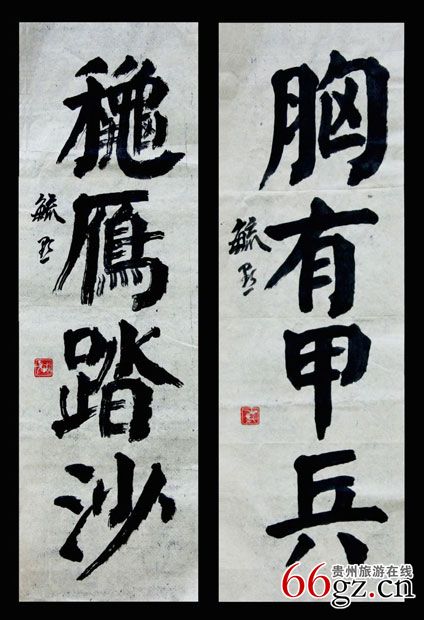 胸有甲兵
毓
穐鴈踏沙
毓
贵州旅游在线
66gz.cn